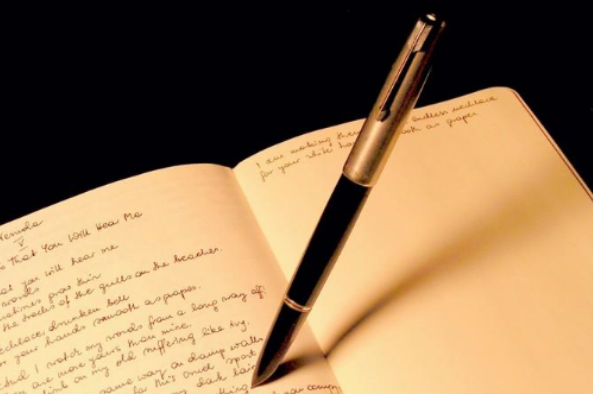 Neruda
V
That You Will Hear Me
at you will hear me
words
metimes grow thin
the tracks of the gulls on the beaches.
drunken bell
your hands smooth as grapes.
I watch my words from a long way off.
are more yours than mine.
on my old suffering like ivy.
same way on damp walls
this cruel sport
my dark lair
I am making them endless necklace
for your white as grapes